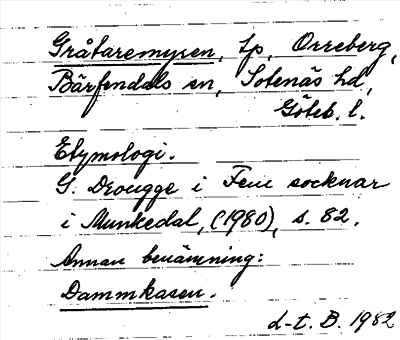 Gråtaremyren, tp, Orreberg,
Bärfendals sn, Sotenäs hd,
Göteb. l.
Etymologi.
G. Drougge i Fem socknar
i Munkedal, (1980), s. 82.
Annan benämning:
Dammkasen.
d-t. B. 1982